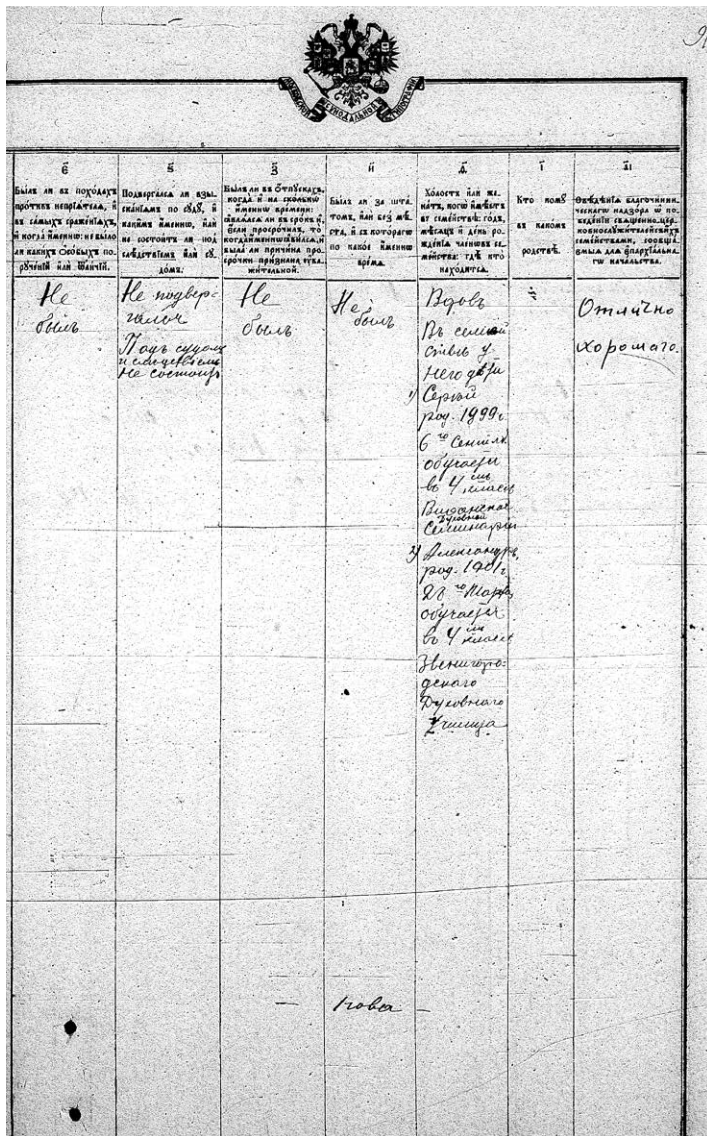 МОСКОВСКОЙ СѴНОДАЛЬНОЙ ТИПОГРАФІИ
є҃
Былъ ли въ походахъ
противъ непріятеля, и
въ самыхъ сраженіяхъ,
и когда именнѡ: не было
ли какихъ ѻсобыхъ по-
рученій или
ѕ҃
Подвергался ли взы-
сканіямъ по судꙋ, и
какимъ именнѡ, или
не состоитъ ли под
слѣдствіемъ или сꙋ-
домъ.
з҃
Былъ ли въ ѻтпускахъ,
когда и на сколькѡ
именнѡ времени:
являлся ли въ срокъ и,
если просрочилъ, то
когда именнѡ явился, и
была ли причина про-
срочки признана ува-
жительной.
и҃
Былъ ли за шта-
томъ, или безъ мѣ-
ста, и съ котораго
по какое именнѡ
время.
ѳ҃
Холостъ или же-
натъ, кого имѣетъ
въ семействѣ: годъ,
мѣсяцъ и день ро-
жденія членовъ се-
мейства: гдѣ кто
находится.
і҃
Кто комꙋ
въ какомъ
родствѣ.
аі҃
Свѣдѣнія благочинни-
ческагѡ надзора ѡ по-
веденіи священно-цер-
ковнослужителей съ ихъ
семействами, сообща-
емыя для епархіальна-
гѡ начальства.
Не
былъ
Не подвер-
гался
Подъ судомъ
и слѣдствіемъ
не состоитъ
Не
былъ
Не
былъ
Вдовъ
Въ семей
ствѣ у
него дѣти
1) Сергѣй
род. 1899 г.
6го Сентяб.
обучается
въ 4мъ классѣ
Виѳанской
Духовной
Семинаріи
2) Александръ,
род. 1901 г.
28го Марта,
обучается
въ 4мъ классѣ
Звенигоро-
дскаго
Духовнаго
Училища
Отлично
хорошаго.